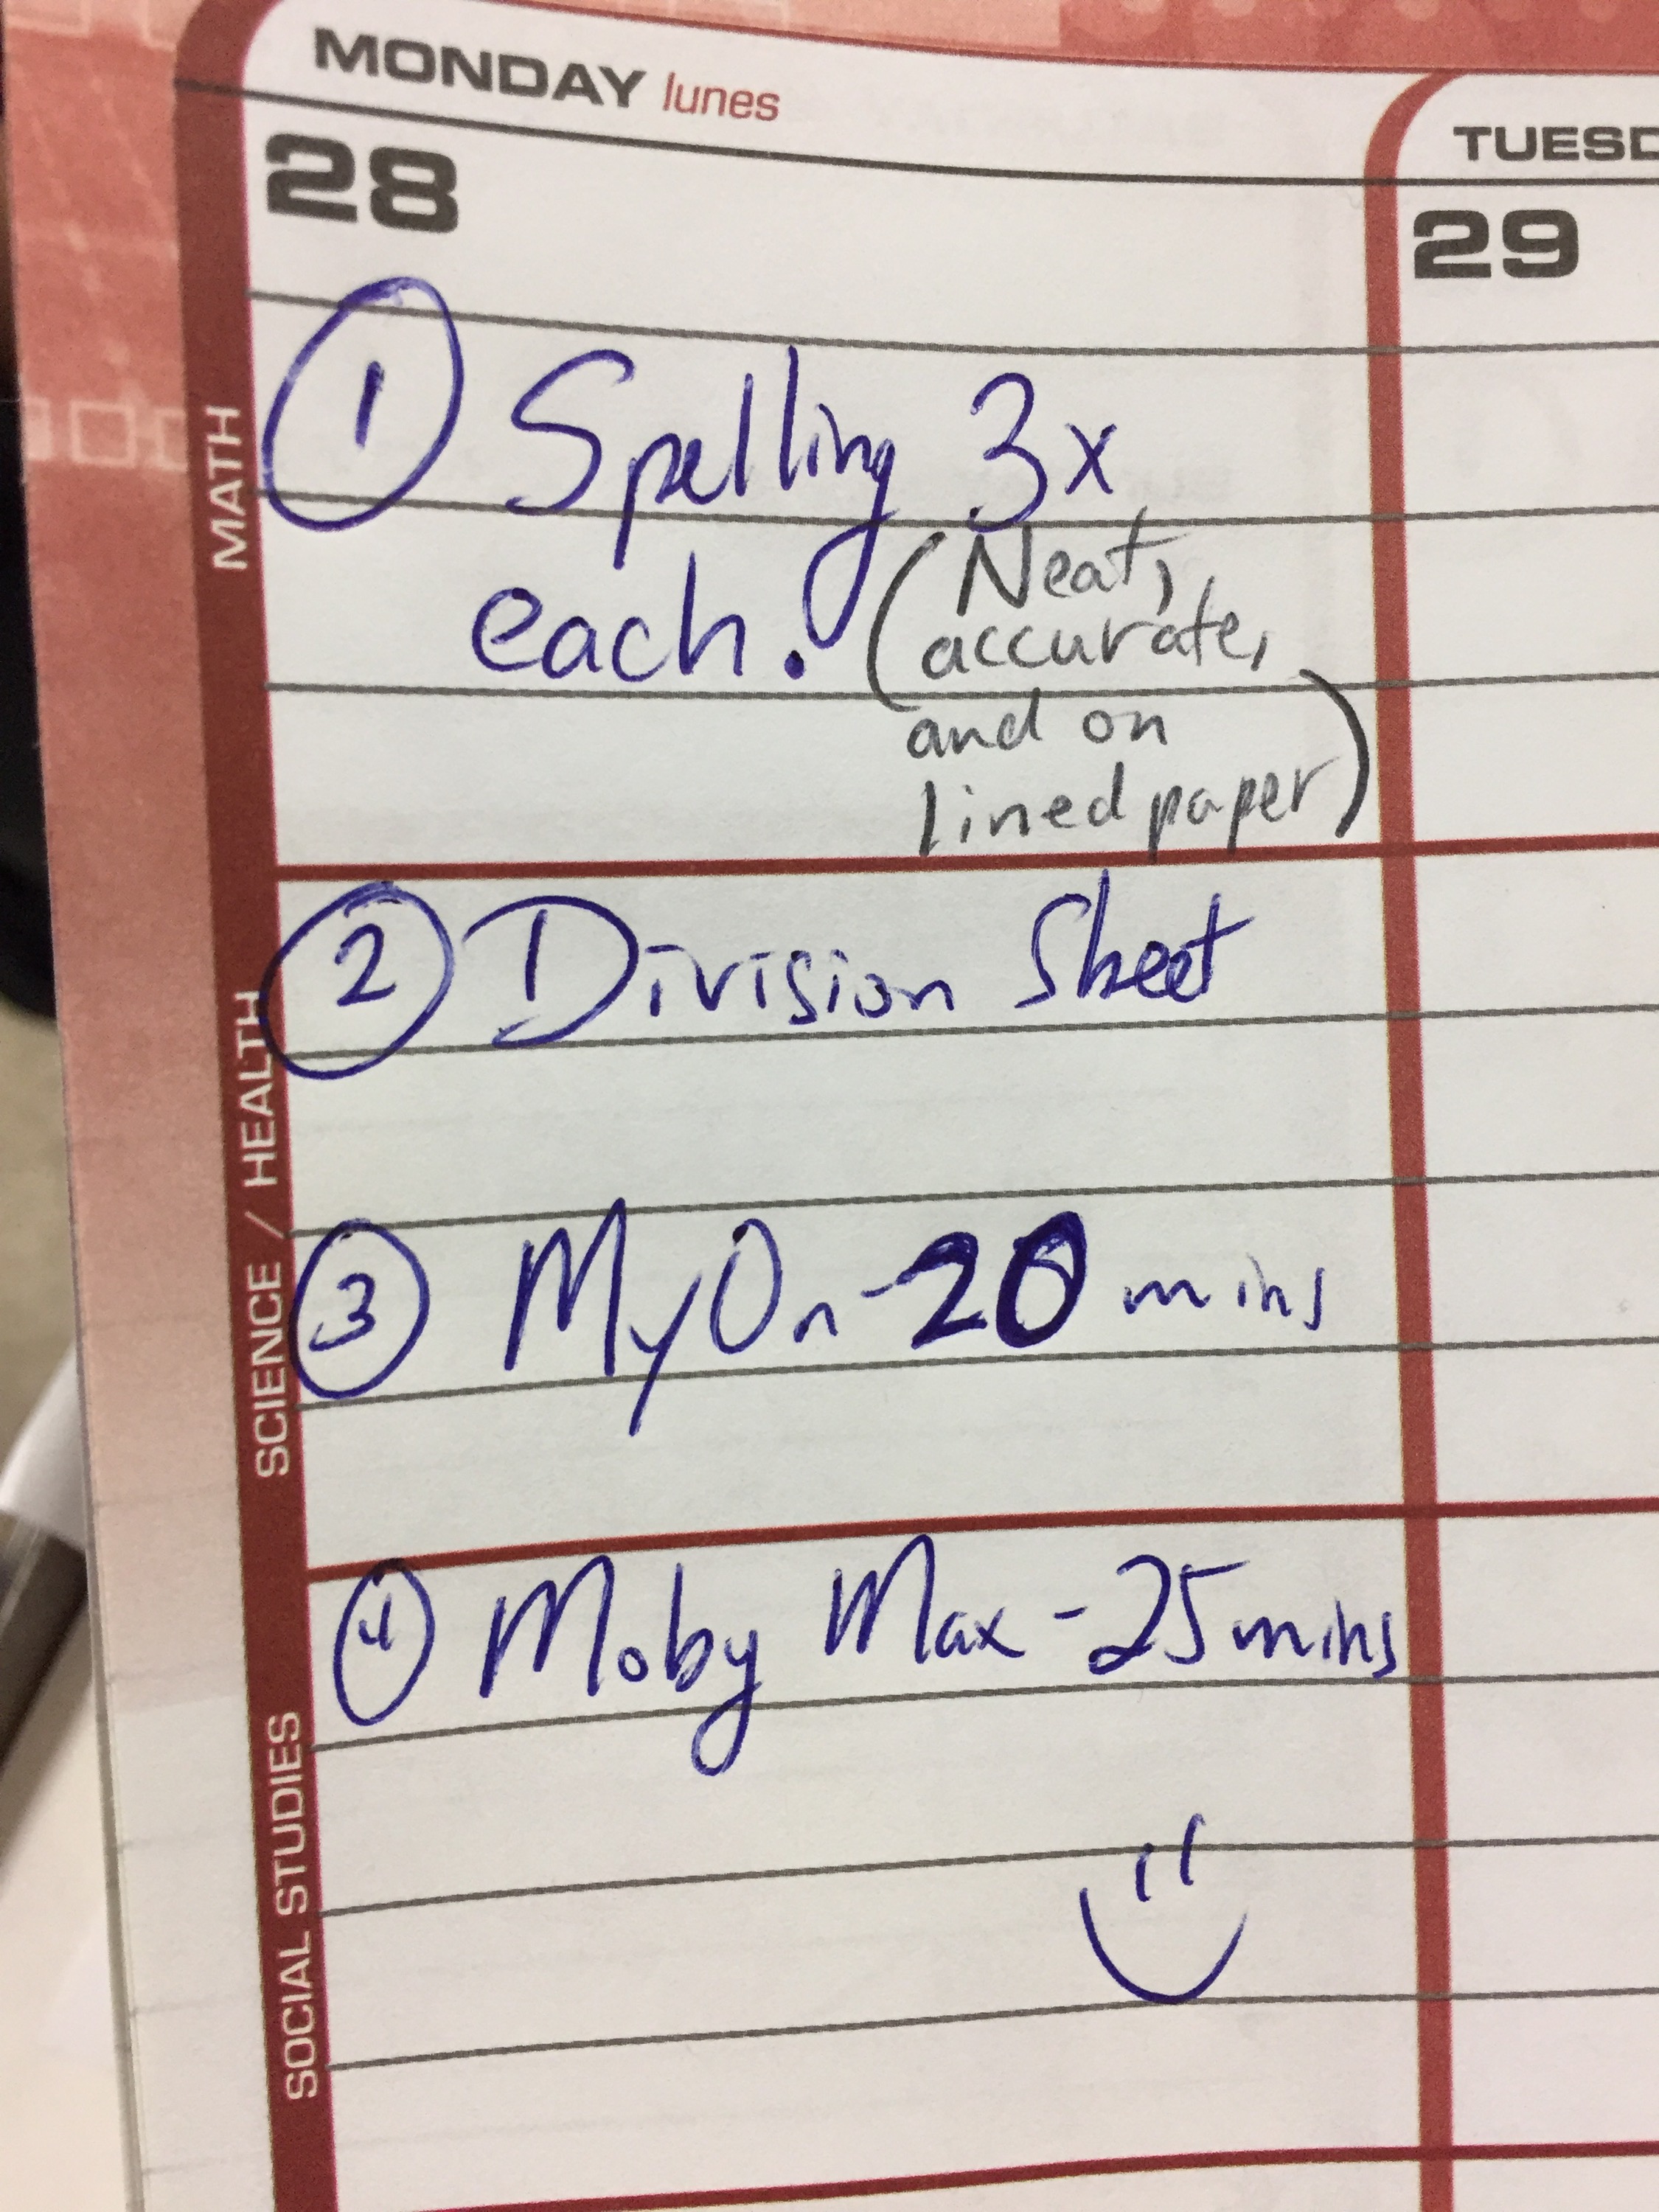 MONDAY lunes
TUESD
28
29
MATH
1 Spelling 3x
each. (Neat,
accurate,
and on
lined paper)
SCIENCE / HEALTH
2 Division Sheet
3 MyOn - 20 mins
SOCIAL STUDIES
4 Moby Max - 25 mins